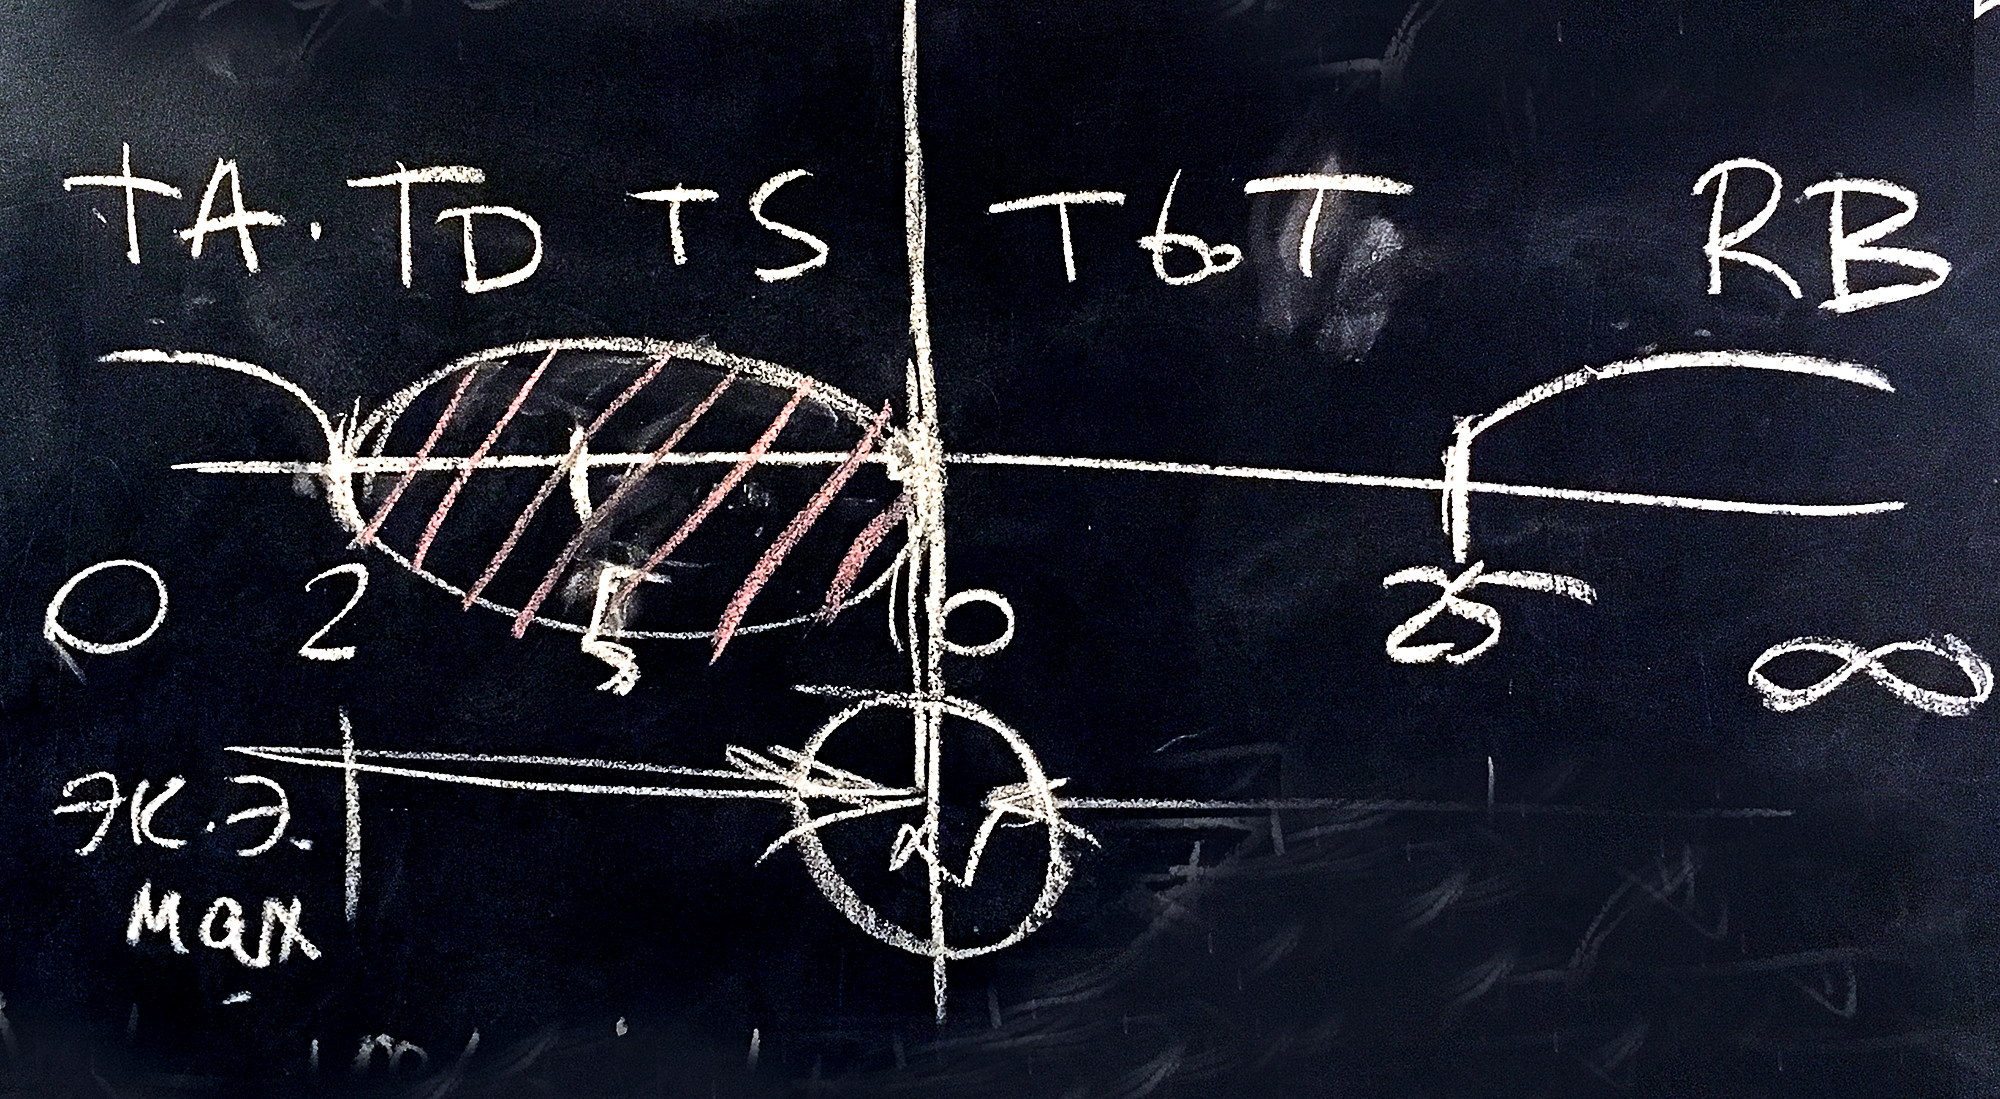 TA. TD TS T60T RB
0 2 5 0 25 ∞
эк.э.
max